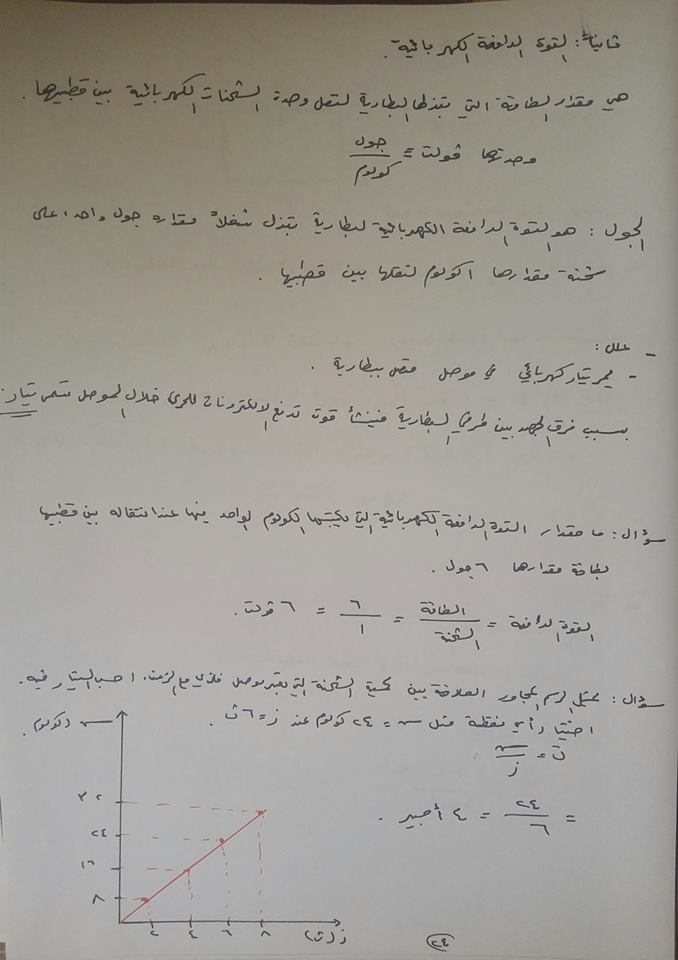 ثانياً: القوة الدافعة الكهربائية.
هي مقدار الطاقة التي تبذلها البطارية لنقل وحدة الشحنات الكهربائية بين قطبيها.
وحدتها فولت = جول / كولوم
الجول: هو القوة الدافعة الكهربائية لبطارية تبذل شغلاً مقداره جول واحد على
شحنة مقدارها ١ كولوم لنقلها بين قطبيها.
- علل:
- يمر تيار كهربائي في موصل متصل ببطارية.
بسبب فرق الجهد بين طرفي البطارية فينشأ قوة تدفع الالكترونات للحركة خلال الموصل تسمى تيار.
سؤال: ما مقدار القوة الدافعة الكهربائية التي يكتسبها الكولوم الواحد منها عند انتقاله بين قطبيها
طاقة مقدارها ٦ جول.
القوة الدافعة = الطاقة / الشحنة = ٦ / ١ = ٦ فولت.
سؤال: يمثل الرسم المجاور العلاقة بين كمية الشحنة التي تعبر موصل فلزي مع الزمن، احسب التيار فيه.
اختيار أي نقطة مثل س = ٢٤ كولوم عند ز = ٦ ث
ت = س / ز
= ٢٤ / ٦ = ٤ أمبير.
س (كولوم)
٣٢
٢٤
١٦
٨
٢ ٤ ٦ ٨
ز (ث)
٢٤